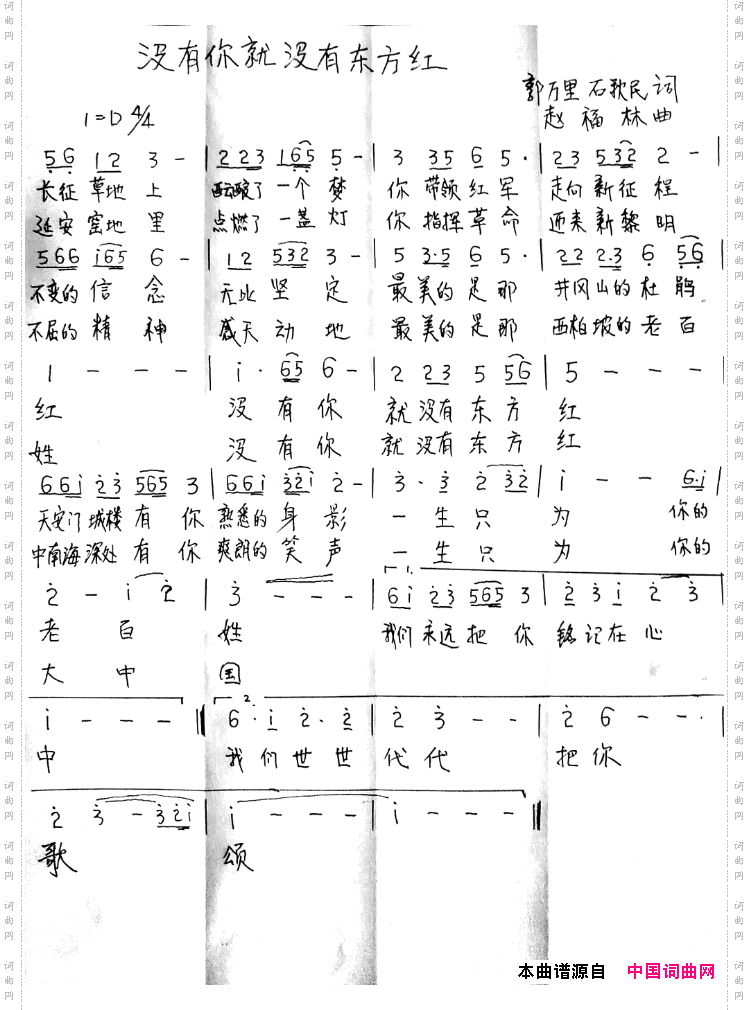 没有你就没有东方红
郭万里 石歌民 词
赵福林 曲
1=D 4/4
5 6 1 2 3 - | 2 2 3 1 6 5 5 - | 3 3 5 6 5 · | 2 3 5 3 2 2 -
长征草地上 酝酿了一个梦 你带领红军 走向新征程
延安窑地里 点燃了一盏灯 你指挥革命 迎来新黎明
5 6 6 i 6 5 6 - | 1 2 5 3 2 3 - | 5 3·5 6 5 · | 2 2 2·3 6 5 6
不变的信念 无比坚定 最美的是那 井冈山的杜鹃
不屈的精神 感天动地 最美的是那 西柏坡的老百
1 - - - | i · 6 5 6 - | 2 2 3 5 5 6 | 5 - - -
红 没有你 就没有东方 红
姓 没有你 就没有东方 红
6 6 i 2 3 5 6 5 3 | 6 6 i 3 2 i 2 - | 3 · 3 2 3 2 | i - - 6·i
天安门城楼有你 熟悉的身影 一生只 为 你的
中南海深处有你 爽朗的笑声 一生只 为 你的
2 - i 2 | 3 - - - | 1. 6 i 2 3 5 6 5 3 | 2 3 i 2 3
老百 姓 我们永远把你 铭记在心
大中 国
i - - - | 2. 6 · i 2 · 2 | 2 3 - - | 2 6 - - ·
中 我们世世 代代 把你
2 3 - 3 2 i | i - - - | i - - -
歌 颂
本曲谱源自 中国词曲网
词曲网